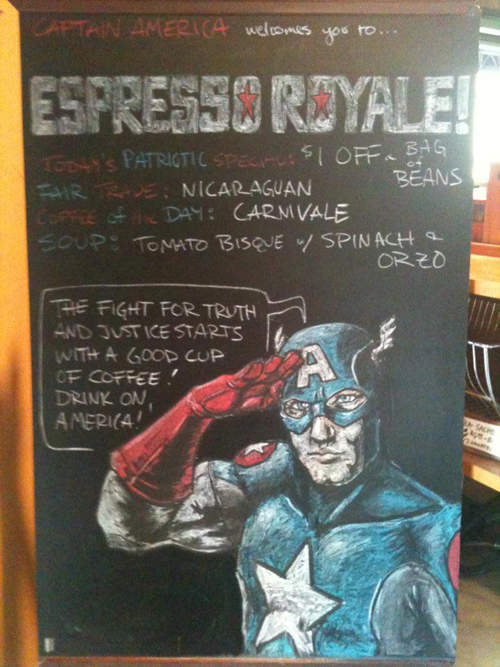 CAPTAIN AMERICA welcomes you to...
ESPRESSO ROYALE!
TODAY'S PATRIOTIC SPECIAL: $1 OFF BAG of BEANS
FAIR TRADE: NICARAGUAN
COFFEE of the DAY: CARNIVALE
SOUP: TOMATO BISQUE w/ SPINACH &
ORZO
THE FIGHT FOR TRUTH
AND JUSTICE STARTS
WITH A GOOD CUP
OF COFFEE!
DRINK ON,
AMERICA!
A